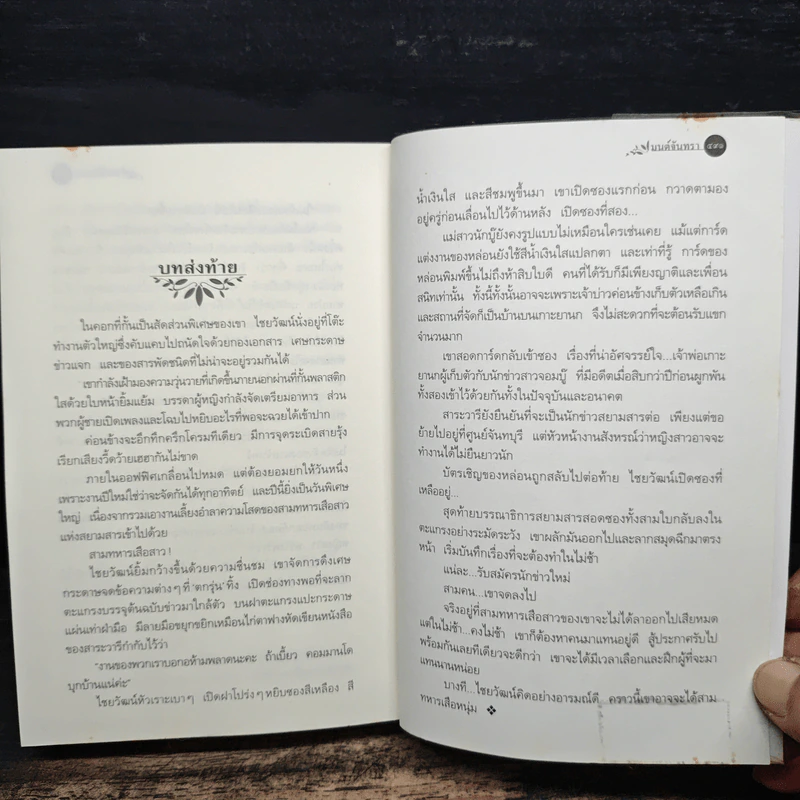 บทส่งท้าย
ในคอกที่กั้นเป็นสัดส่วนพิเศษของเขา ไชยวัฒน์นั่งอยู่ที่โต๊ะ
ทำงานตัวใหญ่ซึ่งคับแคบไปถนัดใจด้วยกองเอกสาร เศษกระดาษ
ข่าวแจก และของสารพัดชนิดที่ไม่น่าจะอยู่รวมกันได้
เขากำลังเฝ้ามองความวุ่นวายที่เกิดขึ้นภายนอกผ่านที่กั้นพลาสติก
ใสด้วยใบหน้ายิ้มแย้ม บรรดาผู้หญิงกำลังจัดเตรียมอาหาร ส่วน
พวกผู้ชายเปิดเพลงและโฉบไปหยิบอะไรที่พอจะฉวยได้เข้าปาก
ค่อนข้างจะอึกทึกครึกโครมทีเดียว มีการจุดระเบิดสายรุ้ง
เรียกเสียงวี้ดว้ายเฮฮากันไม่ขาด
ภายในออฟฟิศเกลื่อนไปหมด แต่ต้องยอมยกให้วันหนึ่ง
เพราะงานปีใหม่ใช่ว่าจะจัดกันได้ทุกอาทิตย์ และปีนี้ยิ่งเป็นวันพิเศษ
ใหญ่ เนื่องจากรวมเอางานเลี้ยงอำลาความโสดของสามทหารเสือสาว
แห่งสยามสารเข้าไปด้วย
สามทหารเสือสาว!
ไชยวัฒน์ยิ้มกว้างขึ้นด้วยความชื่นชม เขาจัดการดึงเศษ
กระดาษจดข้อความต่างๆ ที่ 'ตกรุ่น' ทิ้ง เปิดช่องทางพอที่จะลาก
ตะแกรงบรรจุต้นฉบับข่าวมาใกล้ตัว บนฝาตะแกรงแปะกระดาษ
แผ่นเท่าฝ่ามือ มีลายมือขยุกขยิกเหมือนไก่ตาฟางหัดเขียนหนังสือ
ของสาระวารีกำกับไว้ว่า
"งานของพวกเราบอกอห้ามพลาดนะคะ ถ้าเบี้ยว คอมมานโด
บุกบ้านแน่ค่ะ"
ไชยวัฒน์หัวเราะเบาๆ เปิดฝาโปร่งๆ หยิบซองสีเหลือง สี
มนต์จันทรา ๔๙๑
น้ำเงินใส และสีชมพูขึ้นมา เขาเปิดซองแรกก่อน กวาดตามอง
อยู่ครู่ก่อนเลื่อนไปไว้ด้านหลัง เปิดซองที่สอง...
แม่สาวนักบู๊ยังคงรูปแบบไม่เหมือนใครเช่นเคย แม้แต่การ์ด
แต่งงานของหล่อนยังใช้สีน้ำเงินใสแปลกตา และเท่าที่รู้ การ์ดของ
หล่อนพิมพ์ขึ้นไม่ถึงห้าสิบใบดี คนที่ได้รับก็มีเพียงญาติและเพื่อน
สนิทเท่านั้น ทั้งนี้ทั้งนั้นอาจจะเพราะเจ้าบ่าวค่อนข้างเก็บตัวเหลือเกิน
และสถานที่จัดก็เป็นบ้านบนเกาะยานก จึงไม่สะดวกที่จะต้อนรับแขก
จำนวนมาก
เขาสอดการ์ดกลับเข้าซอง เรื่องที่น่าอัศจรรย์ใจ...เจ้าพ่อเกาะ
ยานกผู้เก็บตัวกับนักข่าวสาวจอมบู๊ ที่มีอดีตเมื่อสิบกว่าปีก่อนผูกพัน
ทั้งสองเข้าไว้ด้วยกันทั้งในปัจจุบันและอนาคต
สาระวารียังยืนยันที่จะเป็นนักข่าวสยามสารต่อ เพียงแต่ขอ
ย้ายไปอยู่ที่ศูนย์จันทบุรี แต่หัวหน้างานสังหรณ์ว่าหญิงสาวอาจจะ
ทำงานได้ไม่ยืนยาวนัก
บัตรเชิญของหล่อนถูกสลับไปต่อท้าย ไชยวัฒน์เปิดซองที่
เหลืออยู่...
สุดท้ายบรรณาธิการสยามสารสอดซองทั้งสามใบกลับลงใน
ตะแกรงอย่างระมัดระวัง เขาผลักมันออกไปและลากสมุดฉีกมาตรง
หน้า เริ่มบันทึกเรื่องที่จะต้องทำในไม่ช้า
แน่ละ...รับสมัครนักข่าวใหม่
สามคน...เขาจดลงไป
จริงอยู่ที่สามทหารเสือสาวของเขาจะไม่ได้ลาออกไปเสียหมด
แต่ในไม่ช้า...คงไม่ช้า เขาก็ต้องหาคนมาแทนอยู่ดี สู้ประกาศรับไป
พร้อมกันเลยทีเดียวจะดีกว่า เขาจะได้มีเวลาเลือกและฝึกผู้ที่จะมา
แทนนานหน่อย
บางที...ไชยวัฒน์คิดอย่างอารมณ์ดี คราวนี้เขาอาจจะได้สาม
ทหารเสือหนุ่ม